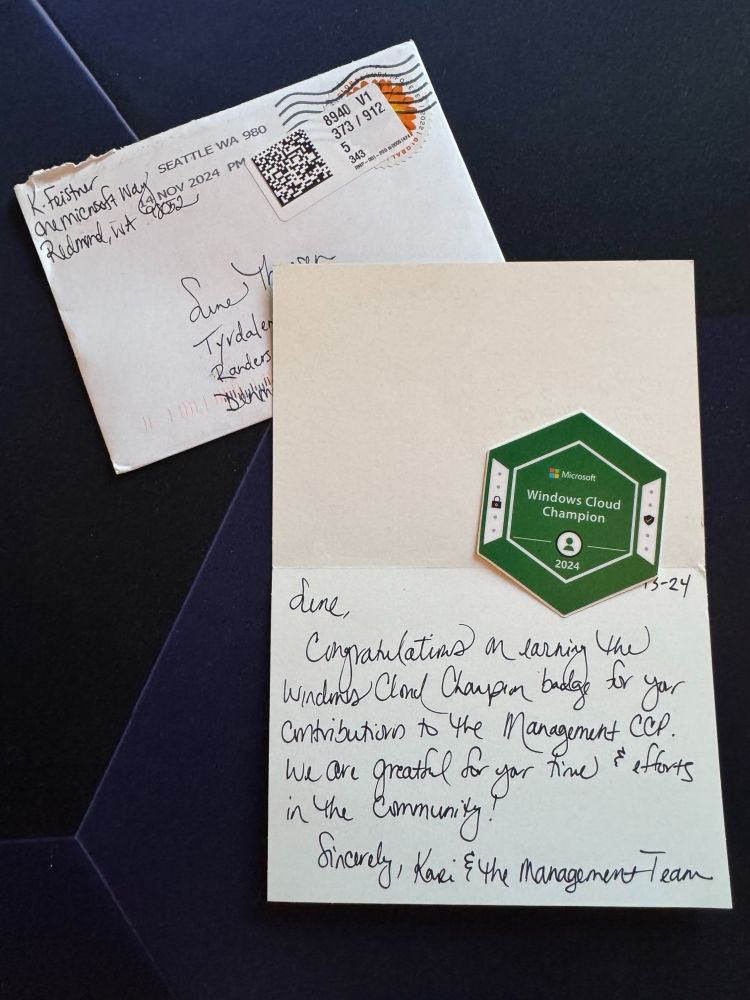 K. Feistner
One microsoft Way
Redmond, WA 98052
SEATTLE WA 980
14 NOV 2024 PM
8940 V1
373 / 912
5
343
GLOBAL
2022
Tyrdalen
Randers
Microsoft
Windows Cloud
Champion
2024
-24
Lene,
Congratulations on earning the
Windows Cloud Champion badge for your
contributions to the Management CCP.
We are greatful for your time & efforts
in the Community!
Sincerely, Kari & the Management Team